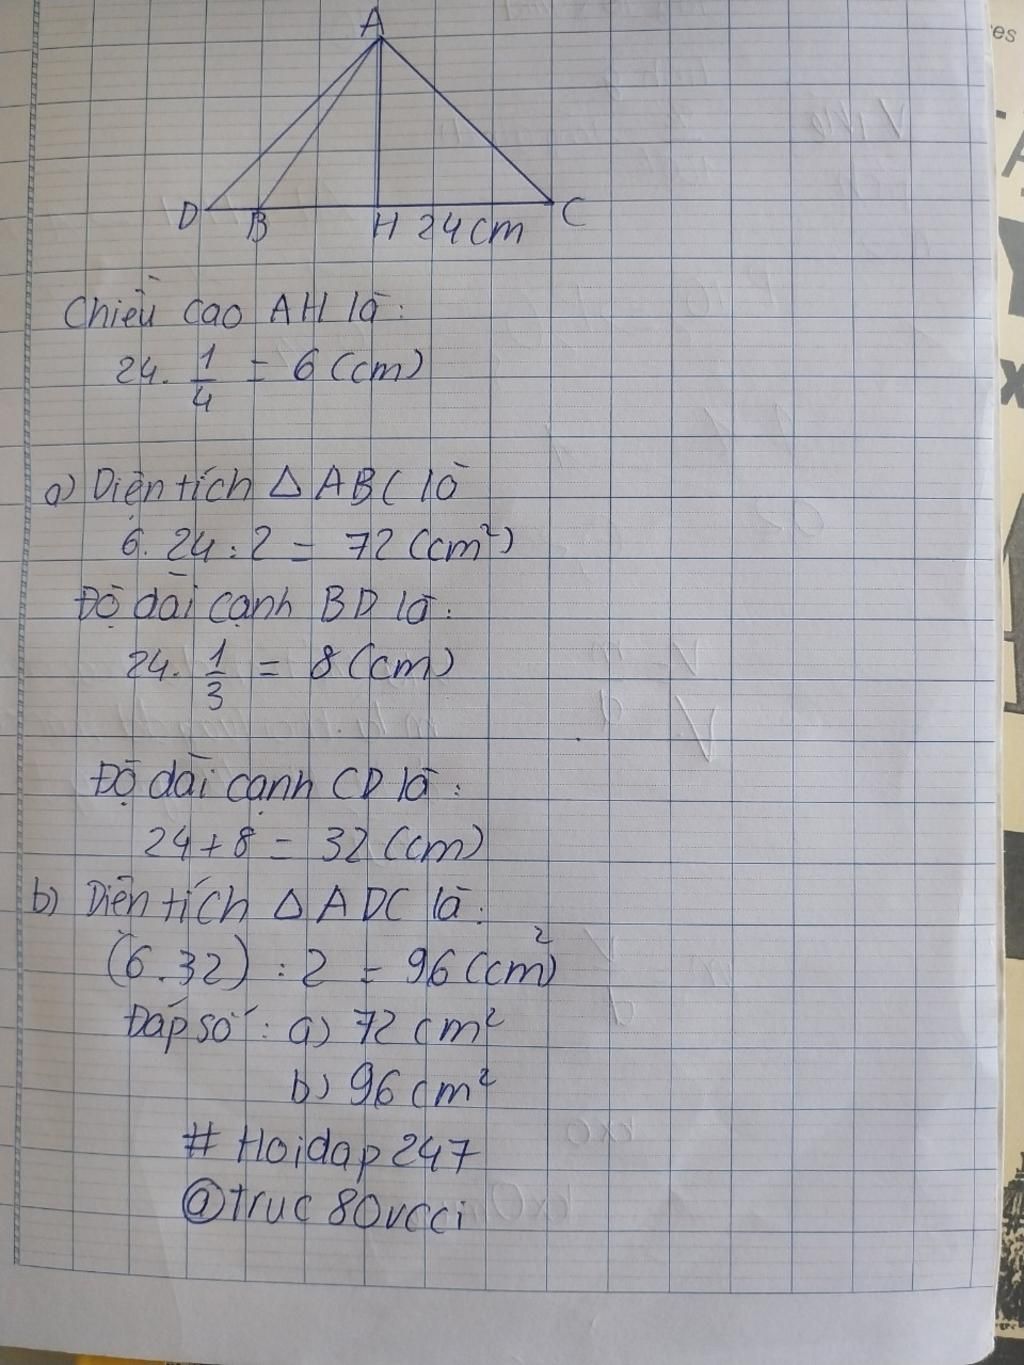 A
D B H 24cm C
Chiều cao AH là:
24. 1/4 = 6 (cm)
a) Diện tích Δ ABC là
6. 24 : 2 = 72 (cm²)
Độ dài cạnh BD là:
24. 1/3 = 8 (cm)
Độ dài cạnh CD là:
24 + 8 = 32 (cm)
b) Diện tích Δ ADC là:
(6.32) : 2 = 96 (cm²)
Đáp số: a) 72 cm²
b) 96 cm²
# Hoidap 247
@truc80vcci